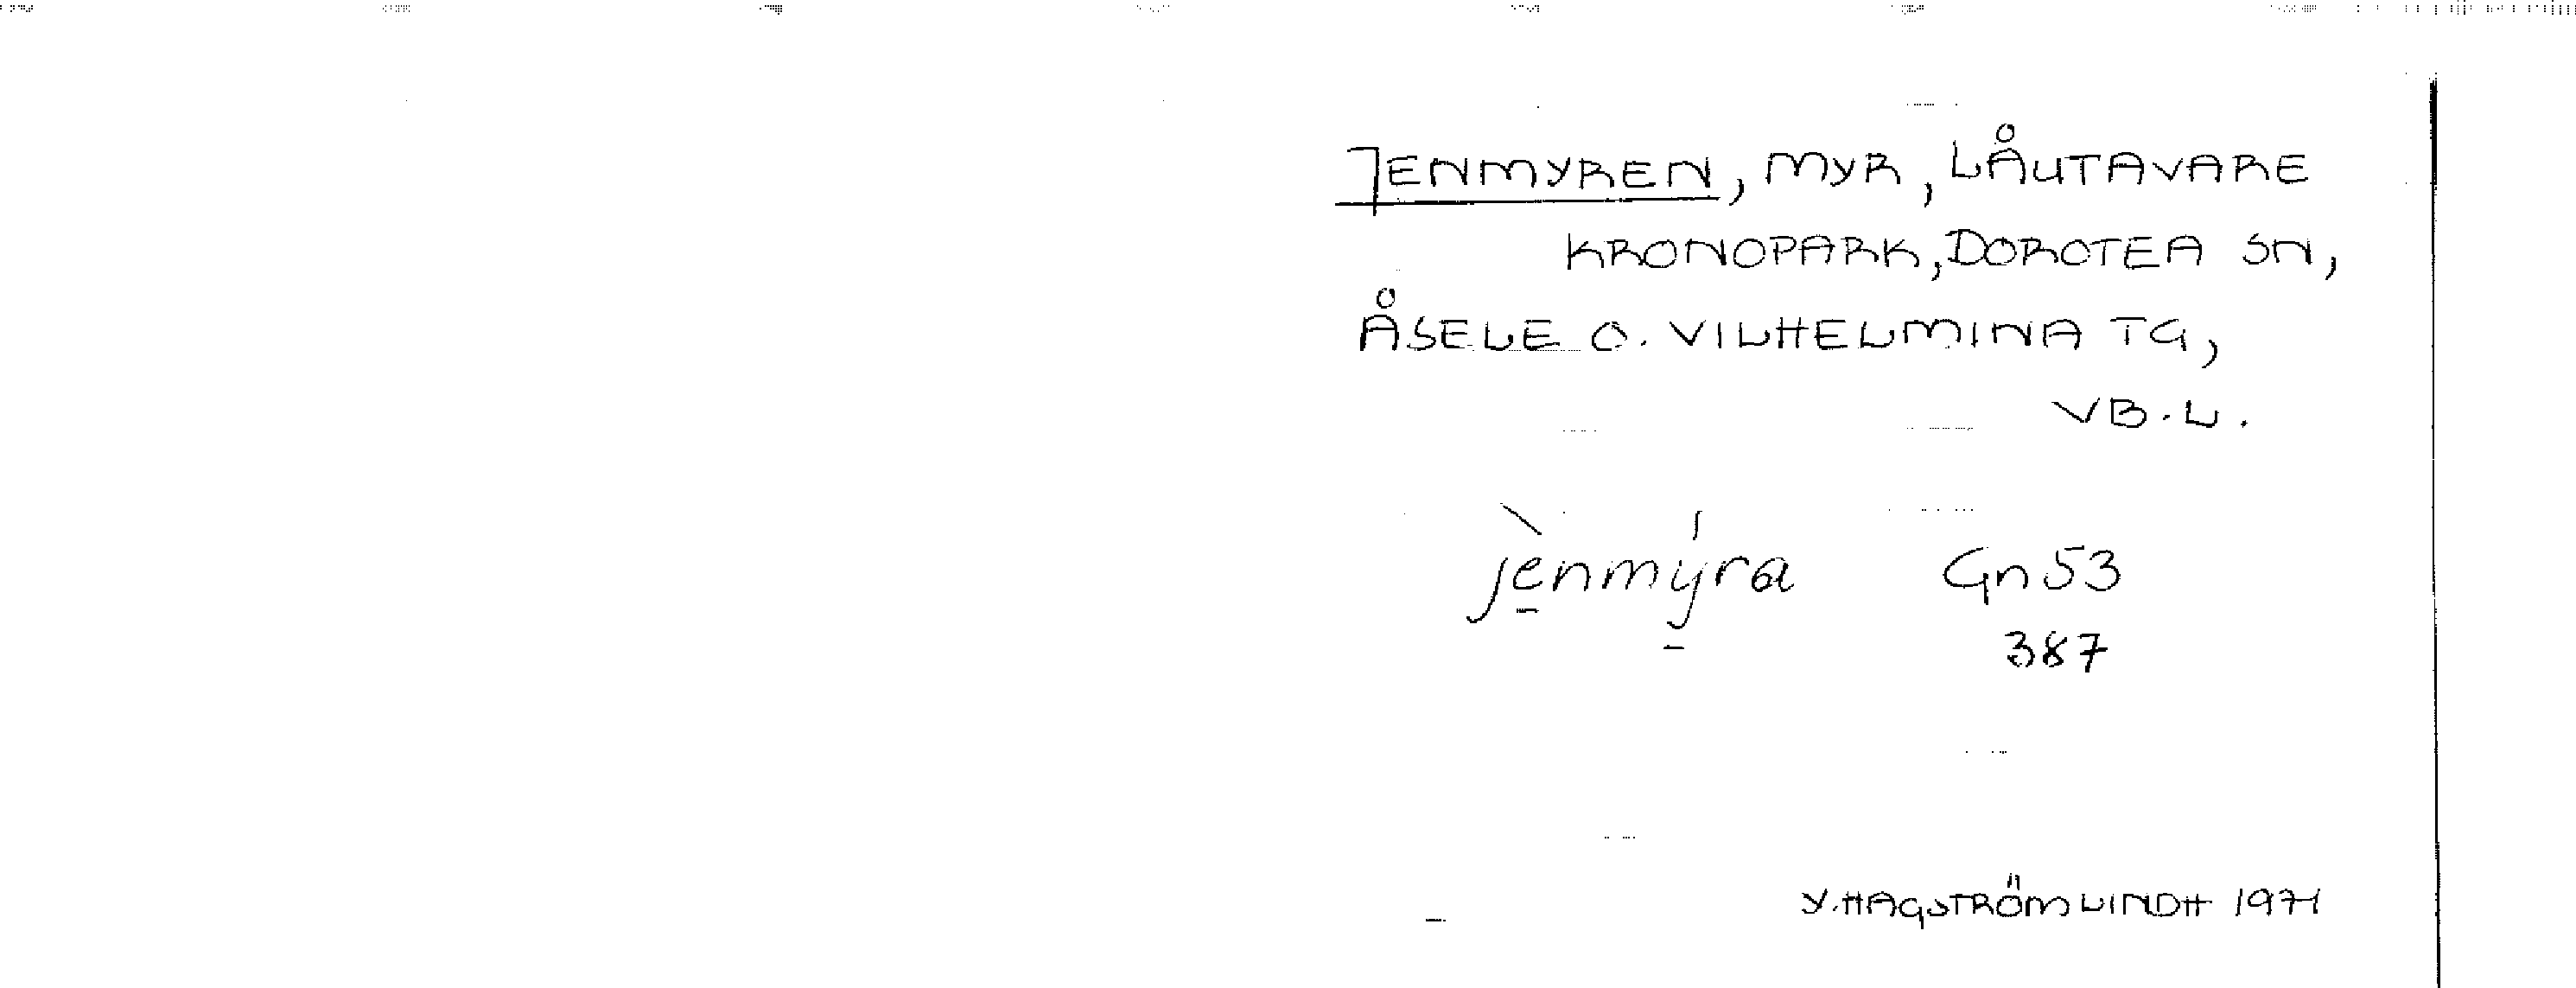 JENMYREN, MYR, LÅUTAVARE
KRONOPARK, DOROTEA SN,
ÅSELE O. VILHELMINA TG,
VB.L.
jènmýra Gn 53
387
Y. HAGSTRÖM LINDH 1971